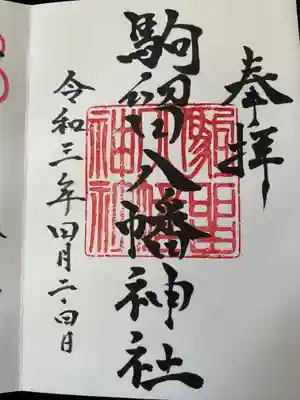 奉拝
駒留八幡神社
駒留八幡神社
令和三年四月二十四日